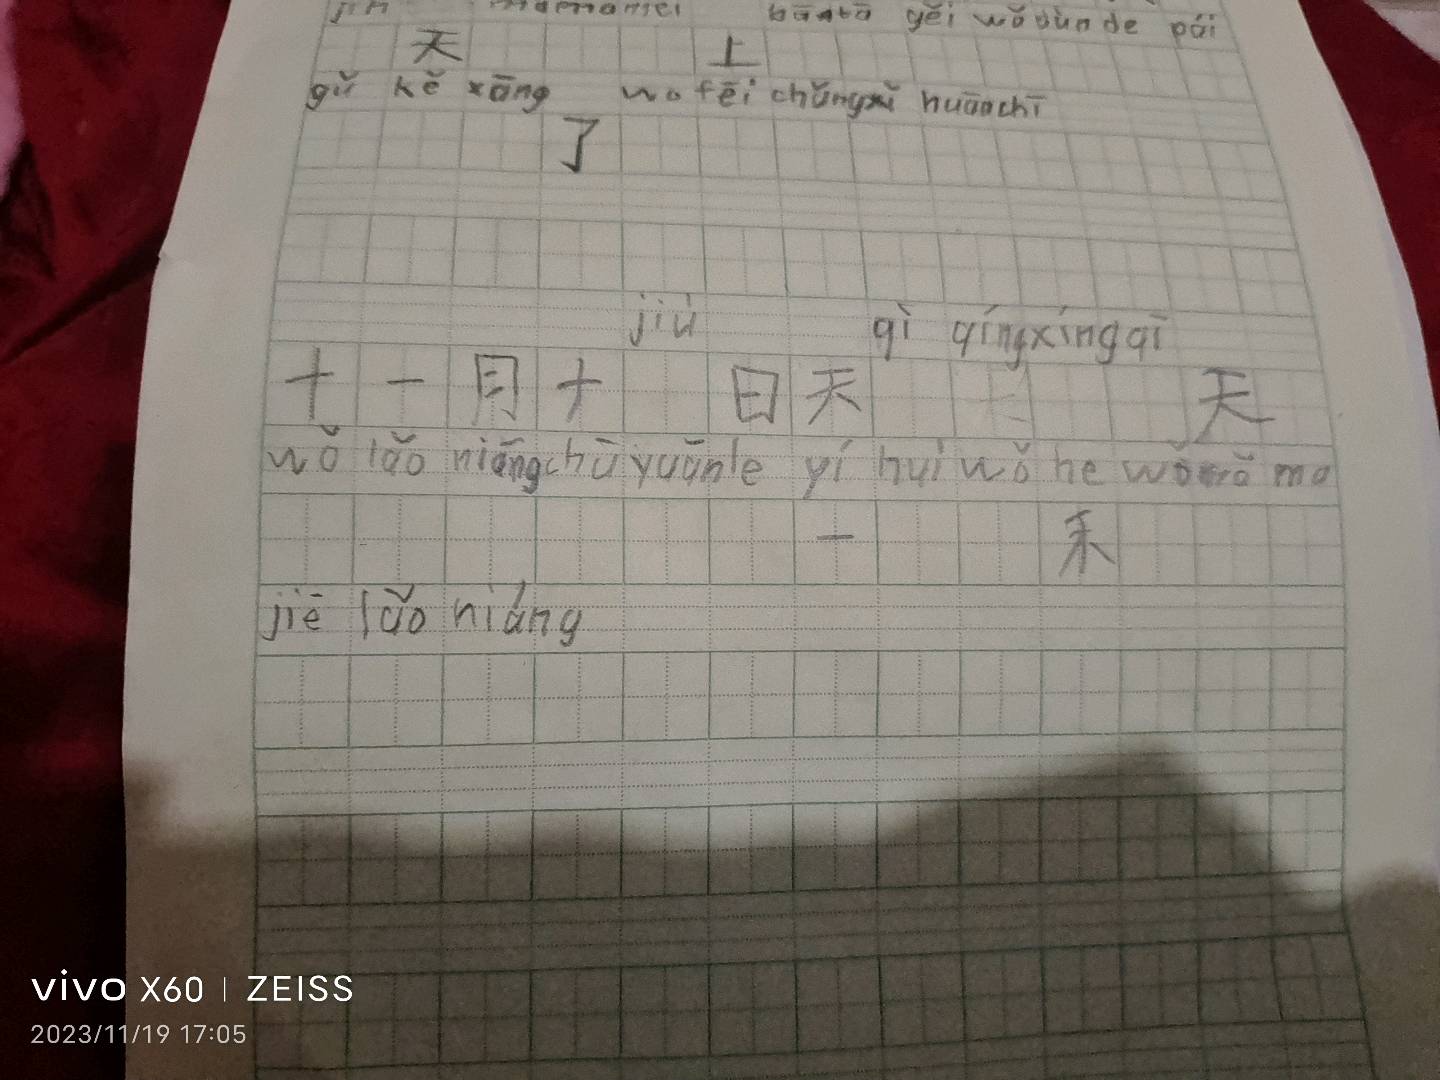 gěi wǒ dùn de pái
天 上
gǔ kě xāng wo fēi chǔngxǐ huāachī
了
jiǔ qì qíngxíngqī
十一月十 日天 天
wǒ lǎo niāngchūyuānle yí huì wǒ he wǒ mā
一 禾
jiē lǎo niáng
vivo X60 | ZEISS
2023/11/19 17:05